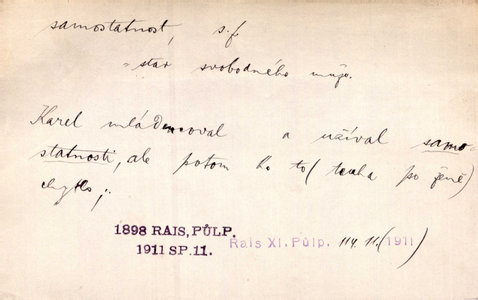 samostatnost, s.f.
= stav svobodného muže.
Karel mládencoval a užíval samo-
statnosti, ale potom ho to (touha po ženě)
chytlo;
1898 RAIS, PŮLP.
1911 SP. 11.
Rais XI. Půlp. 114. 11. (1911)